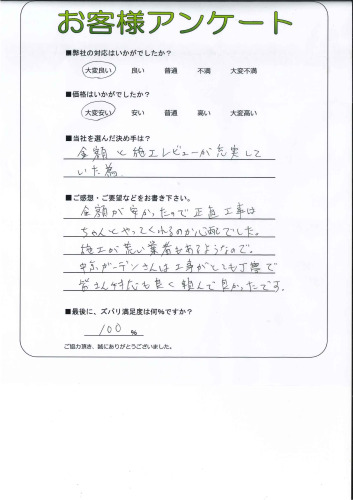 お客様アンケート
■弊社の対応はいかがでしたか?
大変良い 良い 普通 不満 大変不満
■価格はいかがでしたか?
大変安い 安い 普通 高い 大変高い
■当社を選んだ決め手は?
金額と施工レビューが充実して
いた為
■ご感想・ご要望などをお書き下さい。
金額が安かったので正直工事は
ちゃんとやってくれるのか心配でした。
施工が荒い業者もあるようなので。
ガーデンさんは工事がとても丁寧で
皆さん対応も良く頼んで良かったです。
■最後に、ズバリ満足度は何%ですか?
100 %
ご協力頂き、誠にありがとうございました。